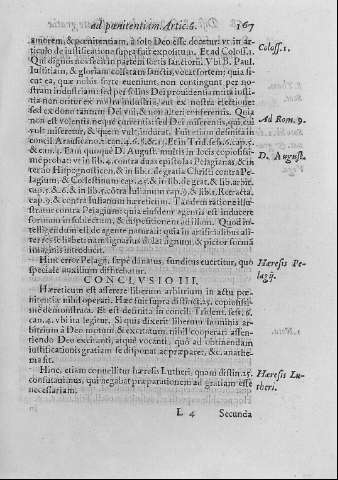 ad pœnitentiam. Artic. 6. 167
amorem, & pœnitentiam, à solo Deo esse docetur: vt in ar-
ticulo de iustificatione supra fuit expositum. Et ad Coloss. 1.
Coloss. 1.
Qui dignos nos fecit in partem sortis sanctorū. Vbi B. Paul.
iustitiam, & gloriam collatam sanctis, vocat sortem; quia si-
cut ea, quæ nobis sorte eueniunt, non contingunt per no-
stram industriam: sed per solius Dei prouidentiā: ita iusti-
tia non oritur ex nostra industria, aut ex nostra electione:
sed ex dono tantum Dei
non est volentis neque currentis: sed Dei miserētis, qui cui
Ad Rom. 9.
vult miseretur, & quem vult, indurat. Fuit etiam definita in
concil. Arausicano 2. can. 4. 6. & Et in Trid. sess. 6. cap. 5.
& can. 1. Eam quoque D. August. multis in locis copiosissi-
D. August.
mè probat: vt in lib. 4. contra duas epistolas Pelagianas, & in
tertio Hipognosticon, & in lib. 1. de gratia Christi contra Pe-
lagium, & Cœlestinum cap. 25. & in lib. de grat. & lib. arbit.
cap. 5. & 6. & in lib. 5. cōtra Iulianum cap. 9. & lib. 1. Retract.
cap. 9. & contra Iulianum hæreticum. Tandem ratione illu-
stramur contra Pelagium: quia eiusdem agentis est inducere
formam in subiectum, & disponere illud ad formam. Quod in-
telligendum est de agente naturali: quia in artificialibus ali-
ter res se habet: nam lignarius dolat lignum, & pictor formā
imaginis introducit.
Hinc error Pelagij, sæpè dānatus, funditus euertitur, quo
Hæresis Pe-
lagij.
speciale auxilium diffitebatur.
CONCLVSIO III.
Hæreticum est asserere liberum arbitrium in actu pœ-
nitentiæ nihil operari. Hæc fuit supra distinct. 25. copiosissi-
mè demonstrata. Et est definita in concil. Trident. sess. 6.
can. 4. vbi ita legitur. Si quis dixerit liberum hominis ar-
bitrium à Deo motum, & excitatum, nihil cooperari assen-
tiendo Deo excitanti, atque vocanti, quò ad obtinendam
iustificationis gratiam se disponat ac præparet, &c. anathe-
ma sit.
Hinc etiam conuellitur hæresis Lutheri, quam distin. 25.
Hæresis Lu-
theri.
confutauimus, qui negabat præparationem ad gratiam esse
necessariam.
L 4 Secunda